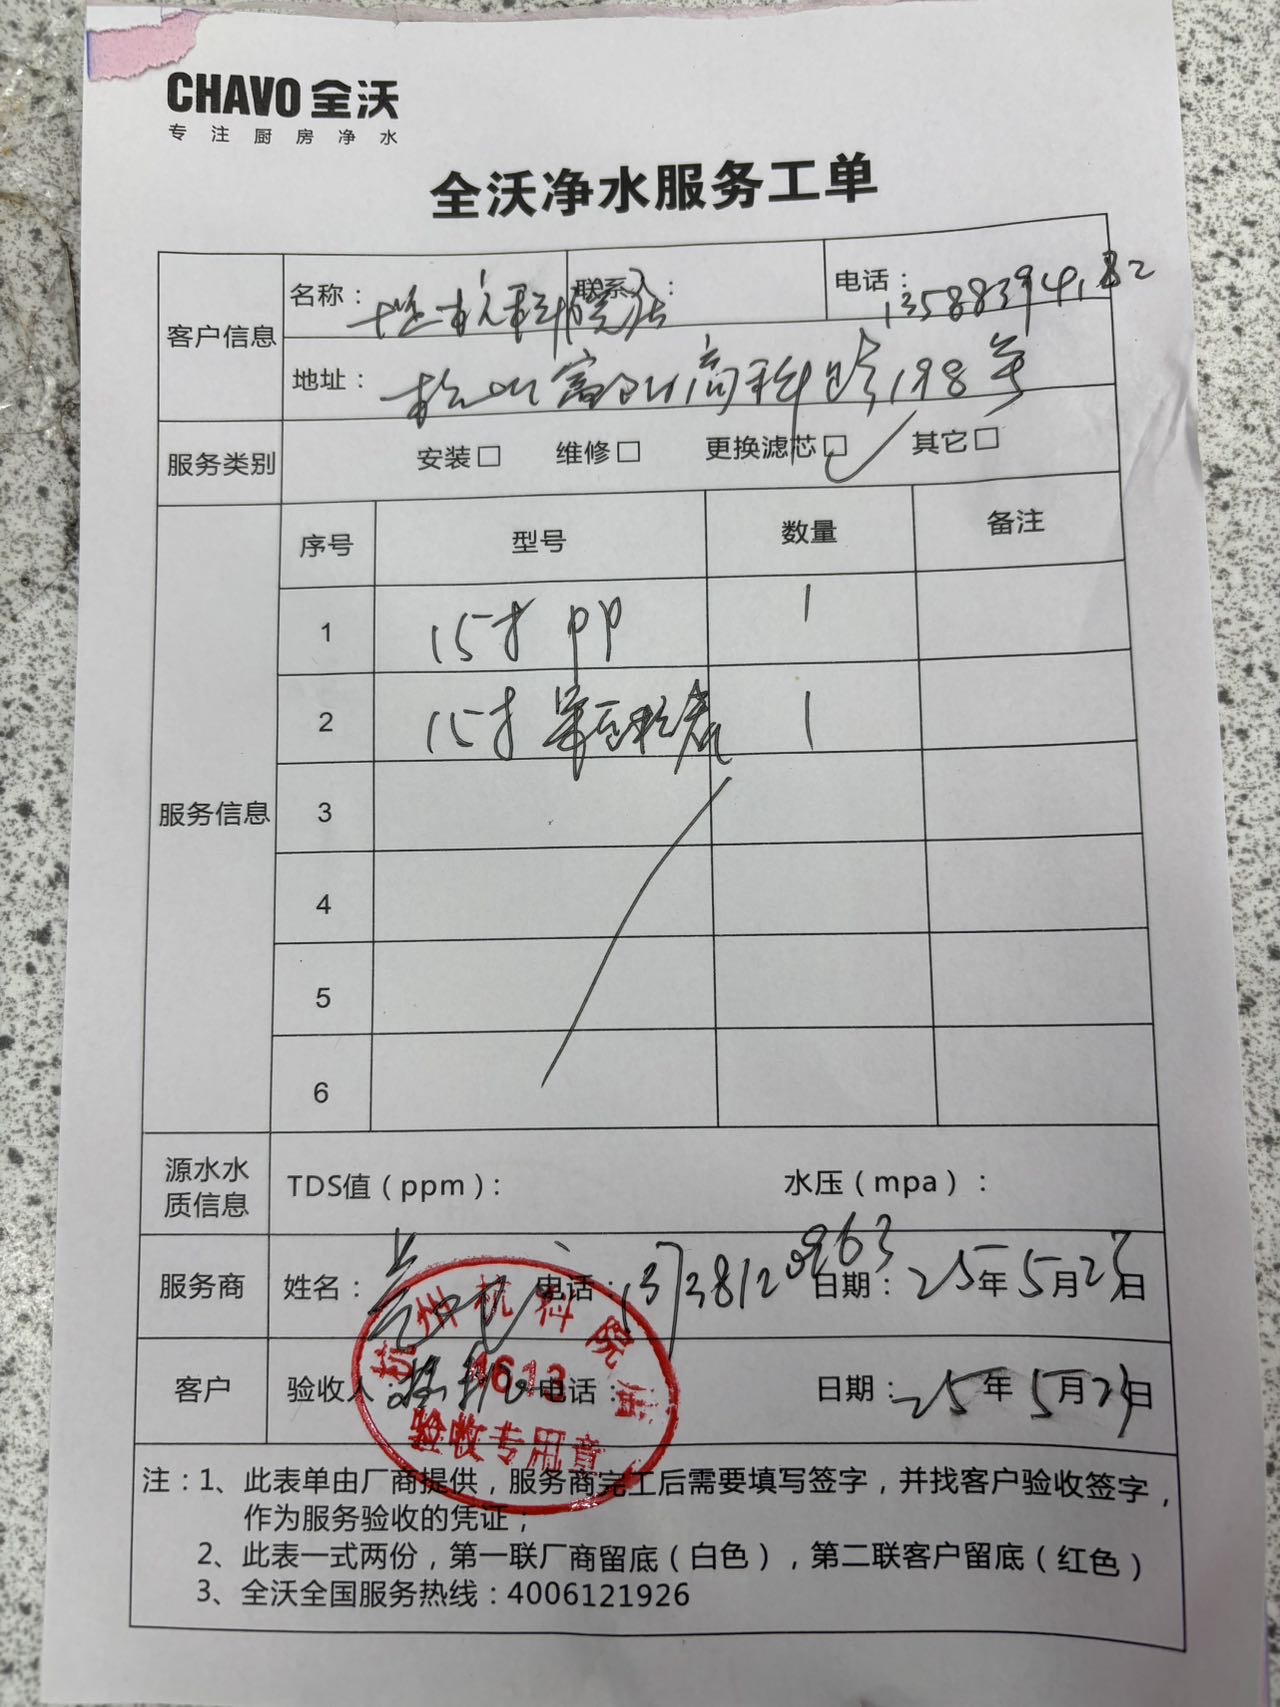 CHAVO 全沃
专注厨房净水
全沃净水服务工单
客户信息
名称：杭科院店
联系人：
电话：13588394182
地址：杭州富阳高科路198号
服务类别
安装□ 维修□ 更换滤芯□✓ 其它□
服务信息
序号 型号 数量 备注
1 15寸 PP 1
2 15寸 1
3
4
5
6
源水水质信息
TDS值（ppm）： 水压（mpa）：
服务商 姓名： 电话：13738120963 日期：25年5月23日
客户 验收人： 电话： 日期：25年5月23日
杭州杭科院店
4613
验收专用章
注：1、此表单由厂商提供，服务商完工后需要填写签字，并找客户验收签字，
作为服务验收的凭证；
2、此表一式两份，第一联厂商留底（白色），第二联客户留底（红色）
3、全沃全国服务热线：4006121926